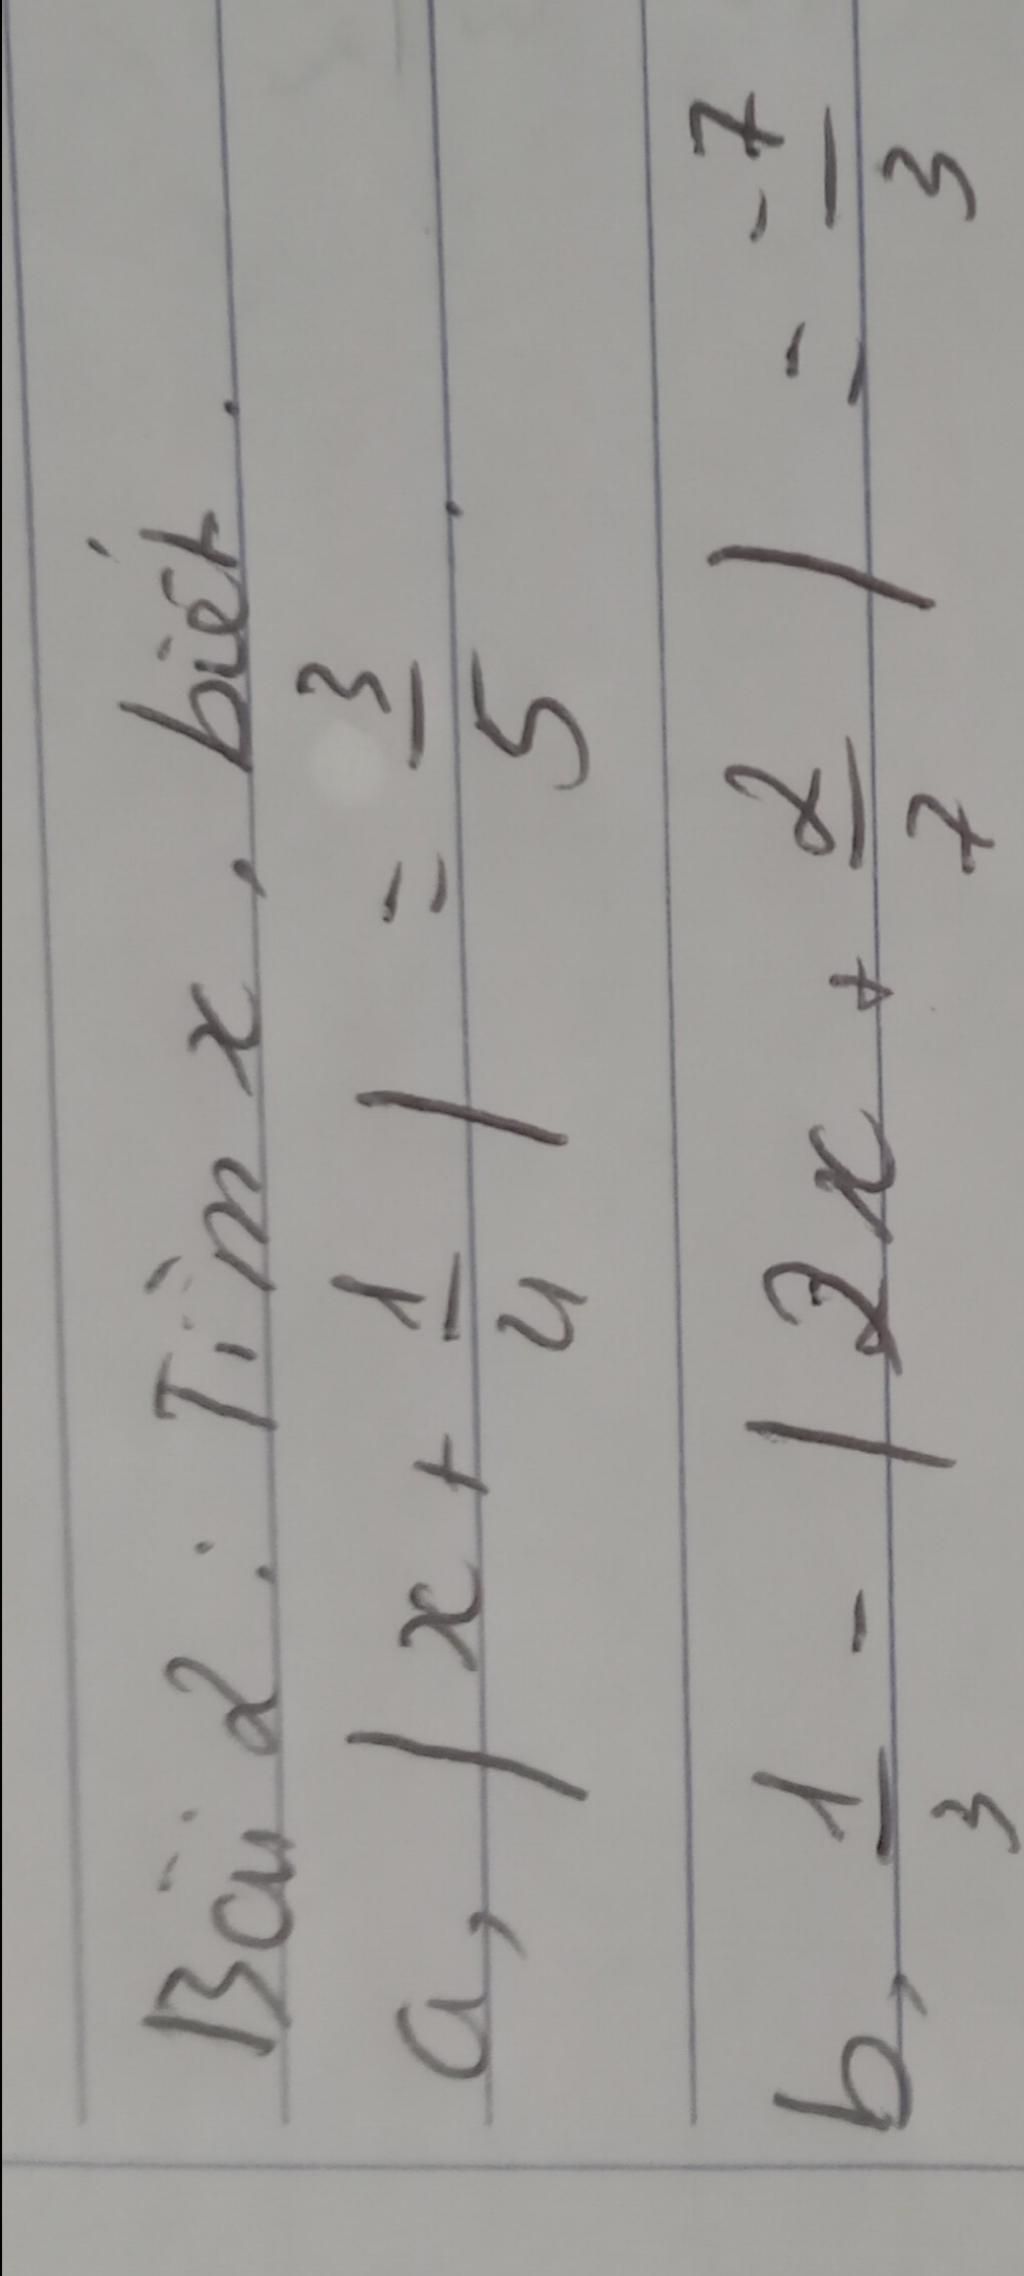 Bài 2: Tìm x, biết.
a, |x + 1/4| = 3/5.
b, 1/3 - |2x + 2/7| = -7/3